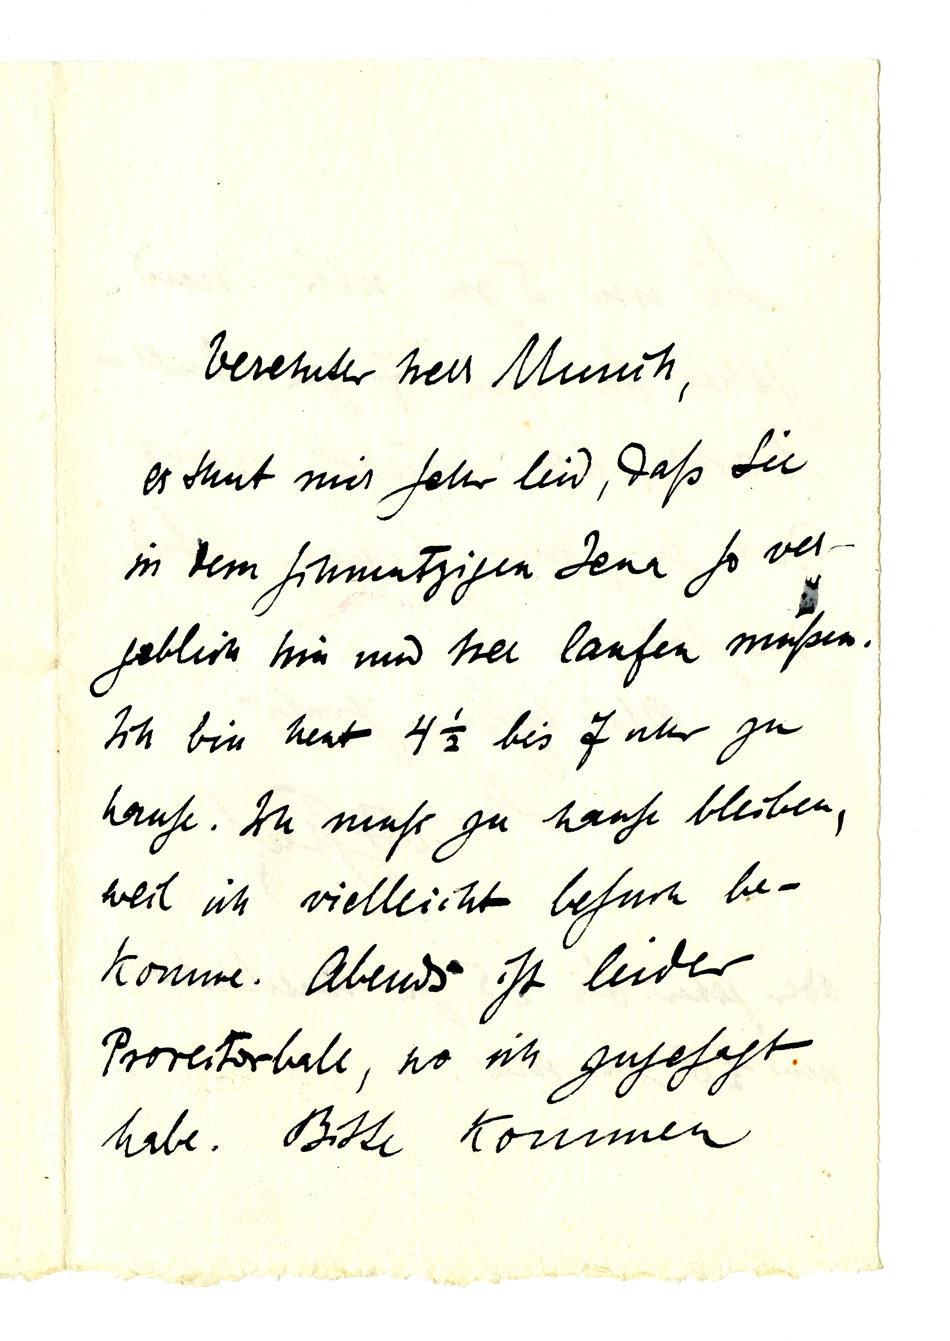 Verehrter herr Munch,
es thut mir sehr leid, daß Sie
in dem schmutzigen Jena so ver-
geblich hin und her laufen mußen.
Ich bin heut 4½ bis 7 uhr zu
hause. Ich muß zu hause bleiben,
weil ich vielleicht besuch be-
komme. Abends ist leider
Prorectorball, wo ich zugesagt
habe. Bitte kommen